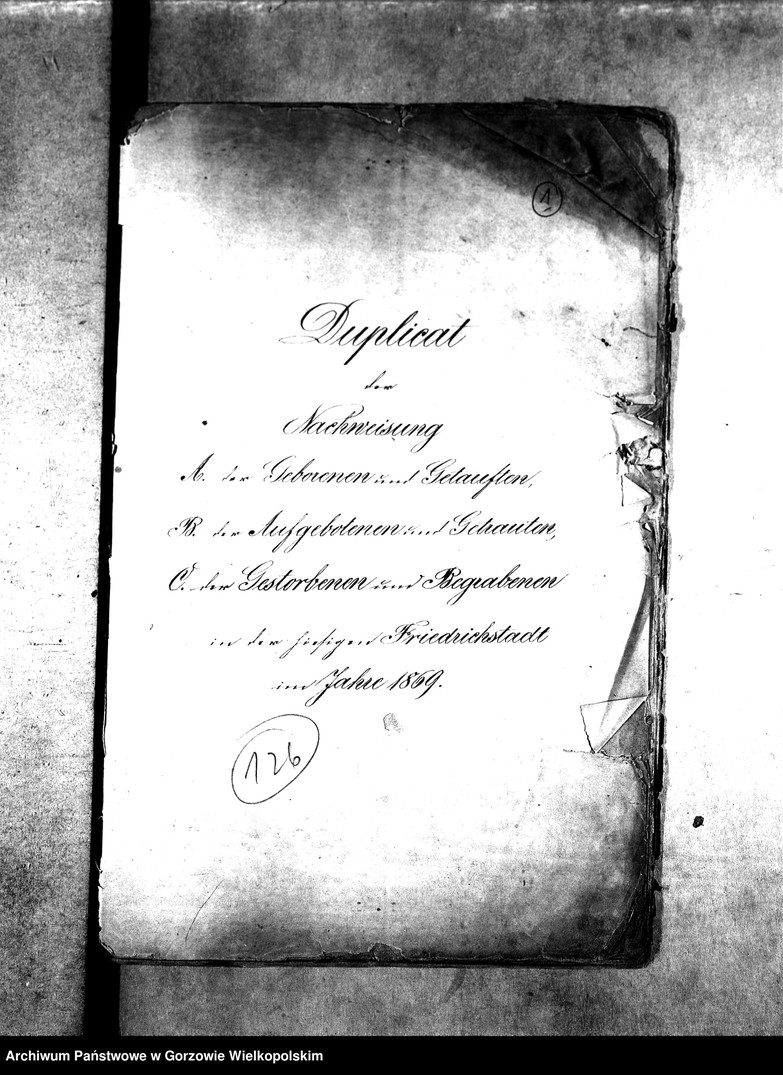 1
Duplicat
der
Nachweisung
A. der Geborenen und Getauften,
B. der Aufgebotenen und Getrauten,
C. der Gestorbenen und Begrabenen
in der hiesigen Friedrichstadt
im Jahre 1869.
126
Archiwum Państwowe w Gorzowie Wielkopolskim